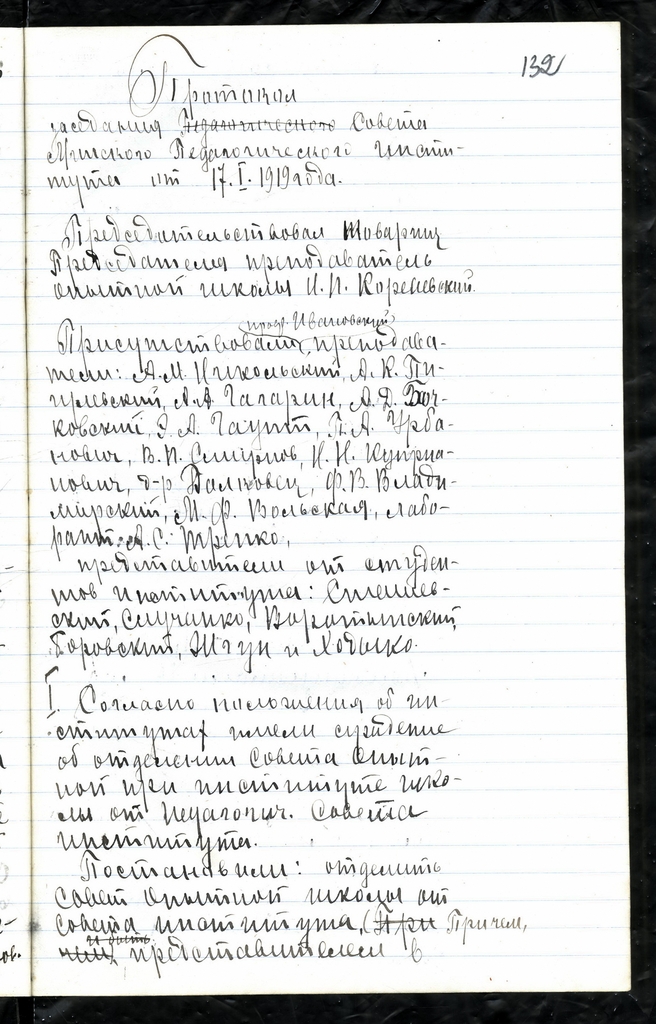 132
Протокол
заседания Педагогического Совета
Минского Педагогического Инсти-
тута от 17.I.1919 года.
Председательствовал товарищ
Председателя преподаватель
опытной школы И.И. Корневский.
проф. Ивановский
Присутствовали, преподава-
тели: А.М. Никольский, А.К. Пи-
гулевский, А.А. Гагарин, А.Д. Боч-
ковский, Э.А. Гаупт, П.А. Урба-
нович, В.И. Смирнов, Н.Н. Куприа-
нович, д-р Полковец, Ф.В. Влади-
мирский, М.Ф. Вольская, лабо-
рант: А.С. Трепко,
представители от студен-
тов института:
ский, Случанко, Воротынский,
Боровский, Жгун и Ходыко.
I. Согласно положения об ин-
ститутах имели суждение
об отделении Совета Опыт-
ной при институте шко-
лы от Педагогич. Совета
института.
Постановили: отделить
Совет Опытной школы от
совета института, (При Причем,
чем, представителем в